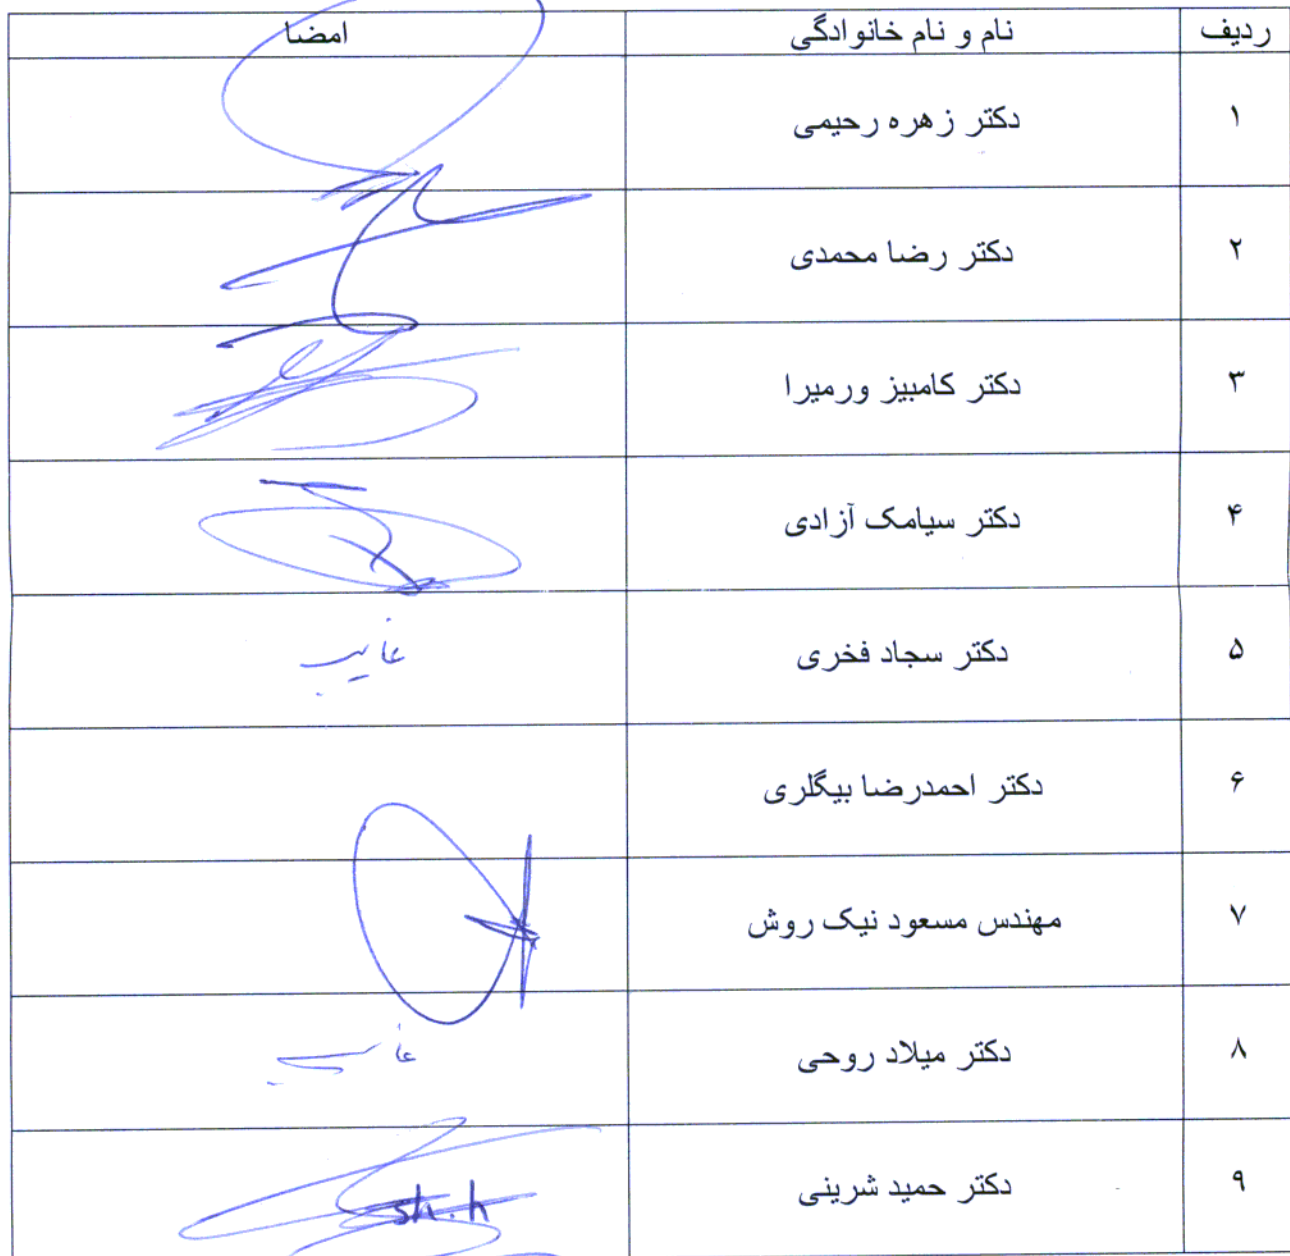 ردیف نام و نام خانوادگی امضا
۱ دکتر زهره رحیمی
۲ دکتر رضا محمدی
۳ دکتر کامبیز ورمیرا
۴ دکتر سیامک آزادی
۵ دکتر سجاد فخری غایب
۶ دکتر احمدرضا بیگلری
۷ مهندس مسعود نیک روش
۸ دکتر میلاد روحی غایب
۹ دکتر حمید شرینی sh.h